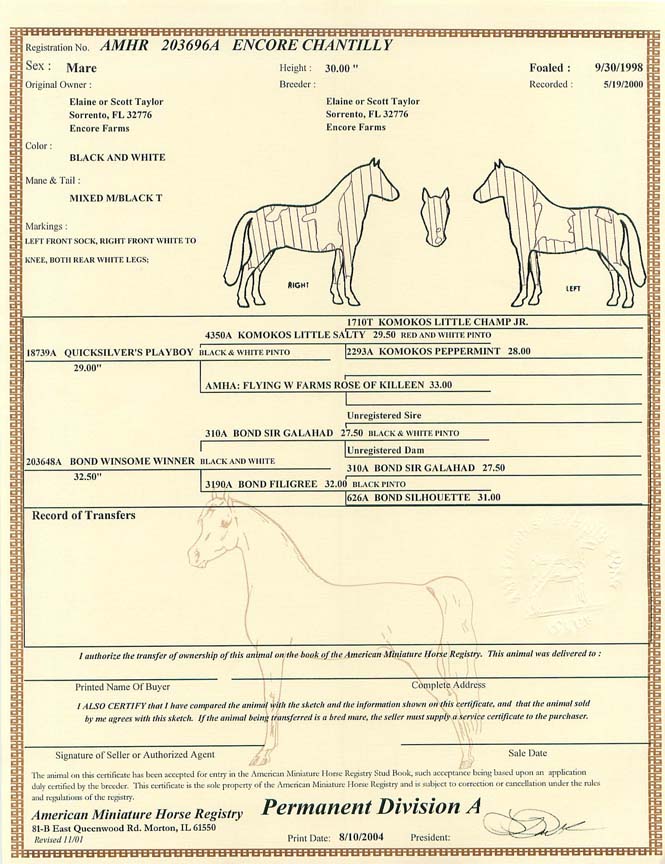 Registration No. AMHR 203696A ENCORE CHANTILLY
Sex : Mare Height : 30.00 " Foaled : 9/30/1998
Original Owner : Breeder : Recorded : 5/19/2000
Elaine or Scott Taylor Elaine or Scott Taylor
Sorrento, FL 32776 Sorrento, FL 32776
Encore Farms Encore Farms
Color :
BLACK AND WHITE
Mane & Tail :
MIXED M/BLACK T
Markings :
LEFT FRONT SOCK, RIGHT FRONT WHITE TO
KNEE, BOTH REAR WHITE LEGS;
RIGHT LEFT
1710T KOMOKOS LITTLE CHAMP JR.
4350A KOMOKOS LITTLE SALTY 29.50 RED AND WHITE PINTO
18739A QUICKSILVER'S PLAYBOY BLACK & WHITE PINTO 2293A KOMOKOS PEPPERMINT 28.00
29.00"
AMHA: FLYING W FARMS ROSE OF KILLEEN 33.00
Unregistered Sire
310A BOND SIR GALAHAD 27.50 BLACK & WHITE PINTO
Unregistered Dam
203648A BOND WINSOME WINNER BLACK AND WHITE
310A BOND SIR GALAHAD 27.50
32.50"
3190A BOND FILIGREE 32.00 BLACK PINTO
626A BOND SILHOUETTE 31.00
Record of Transfers
I authorize the transfer of ownership of this animal on the book of the American Miniature Horse Registry. This animal was delivered to :
Printed Name Of Buyer Complete Address
I ALSO CERTIFY that I have compared the animal with the sketch and the information shown on this certificate, and that the animal sold
by me agrees with this sketch. If the animal being transferred is a bred mare, the seller must supply a service certificate to the purchaser.
Signature of Seller or Authorized Agent Sale Date
The animal on this certificate has been accepted for entry in the American Miniature Horse Registry Stud Book, such acceptance being based upon an application
duly certified by the breeder. This certificate is the sole property of the American Miniature Horse Registry and is subject to correction or cancellation under the rules
and regulations of the registry.
American Miniature Horse Registry Permanent Division A
81-B East Queenwood Rd. Morton, IL 61550
Revised 11/01 Print Date: 8/10/2004 President: